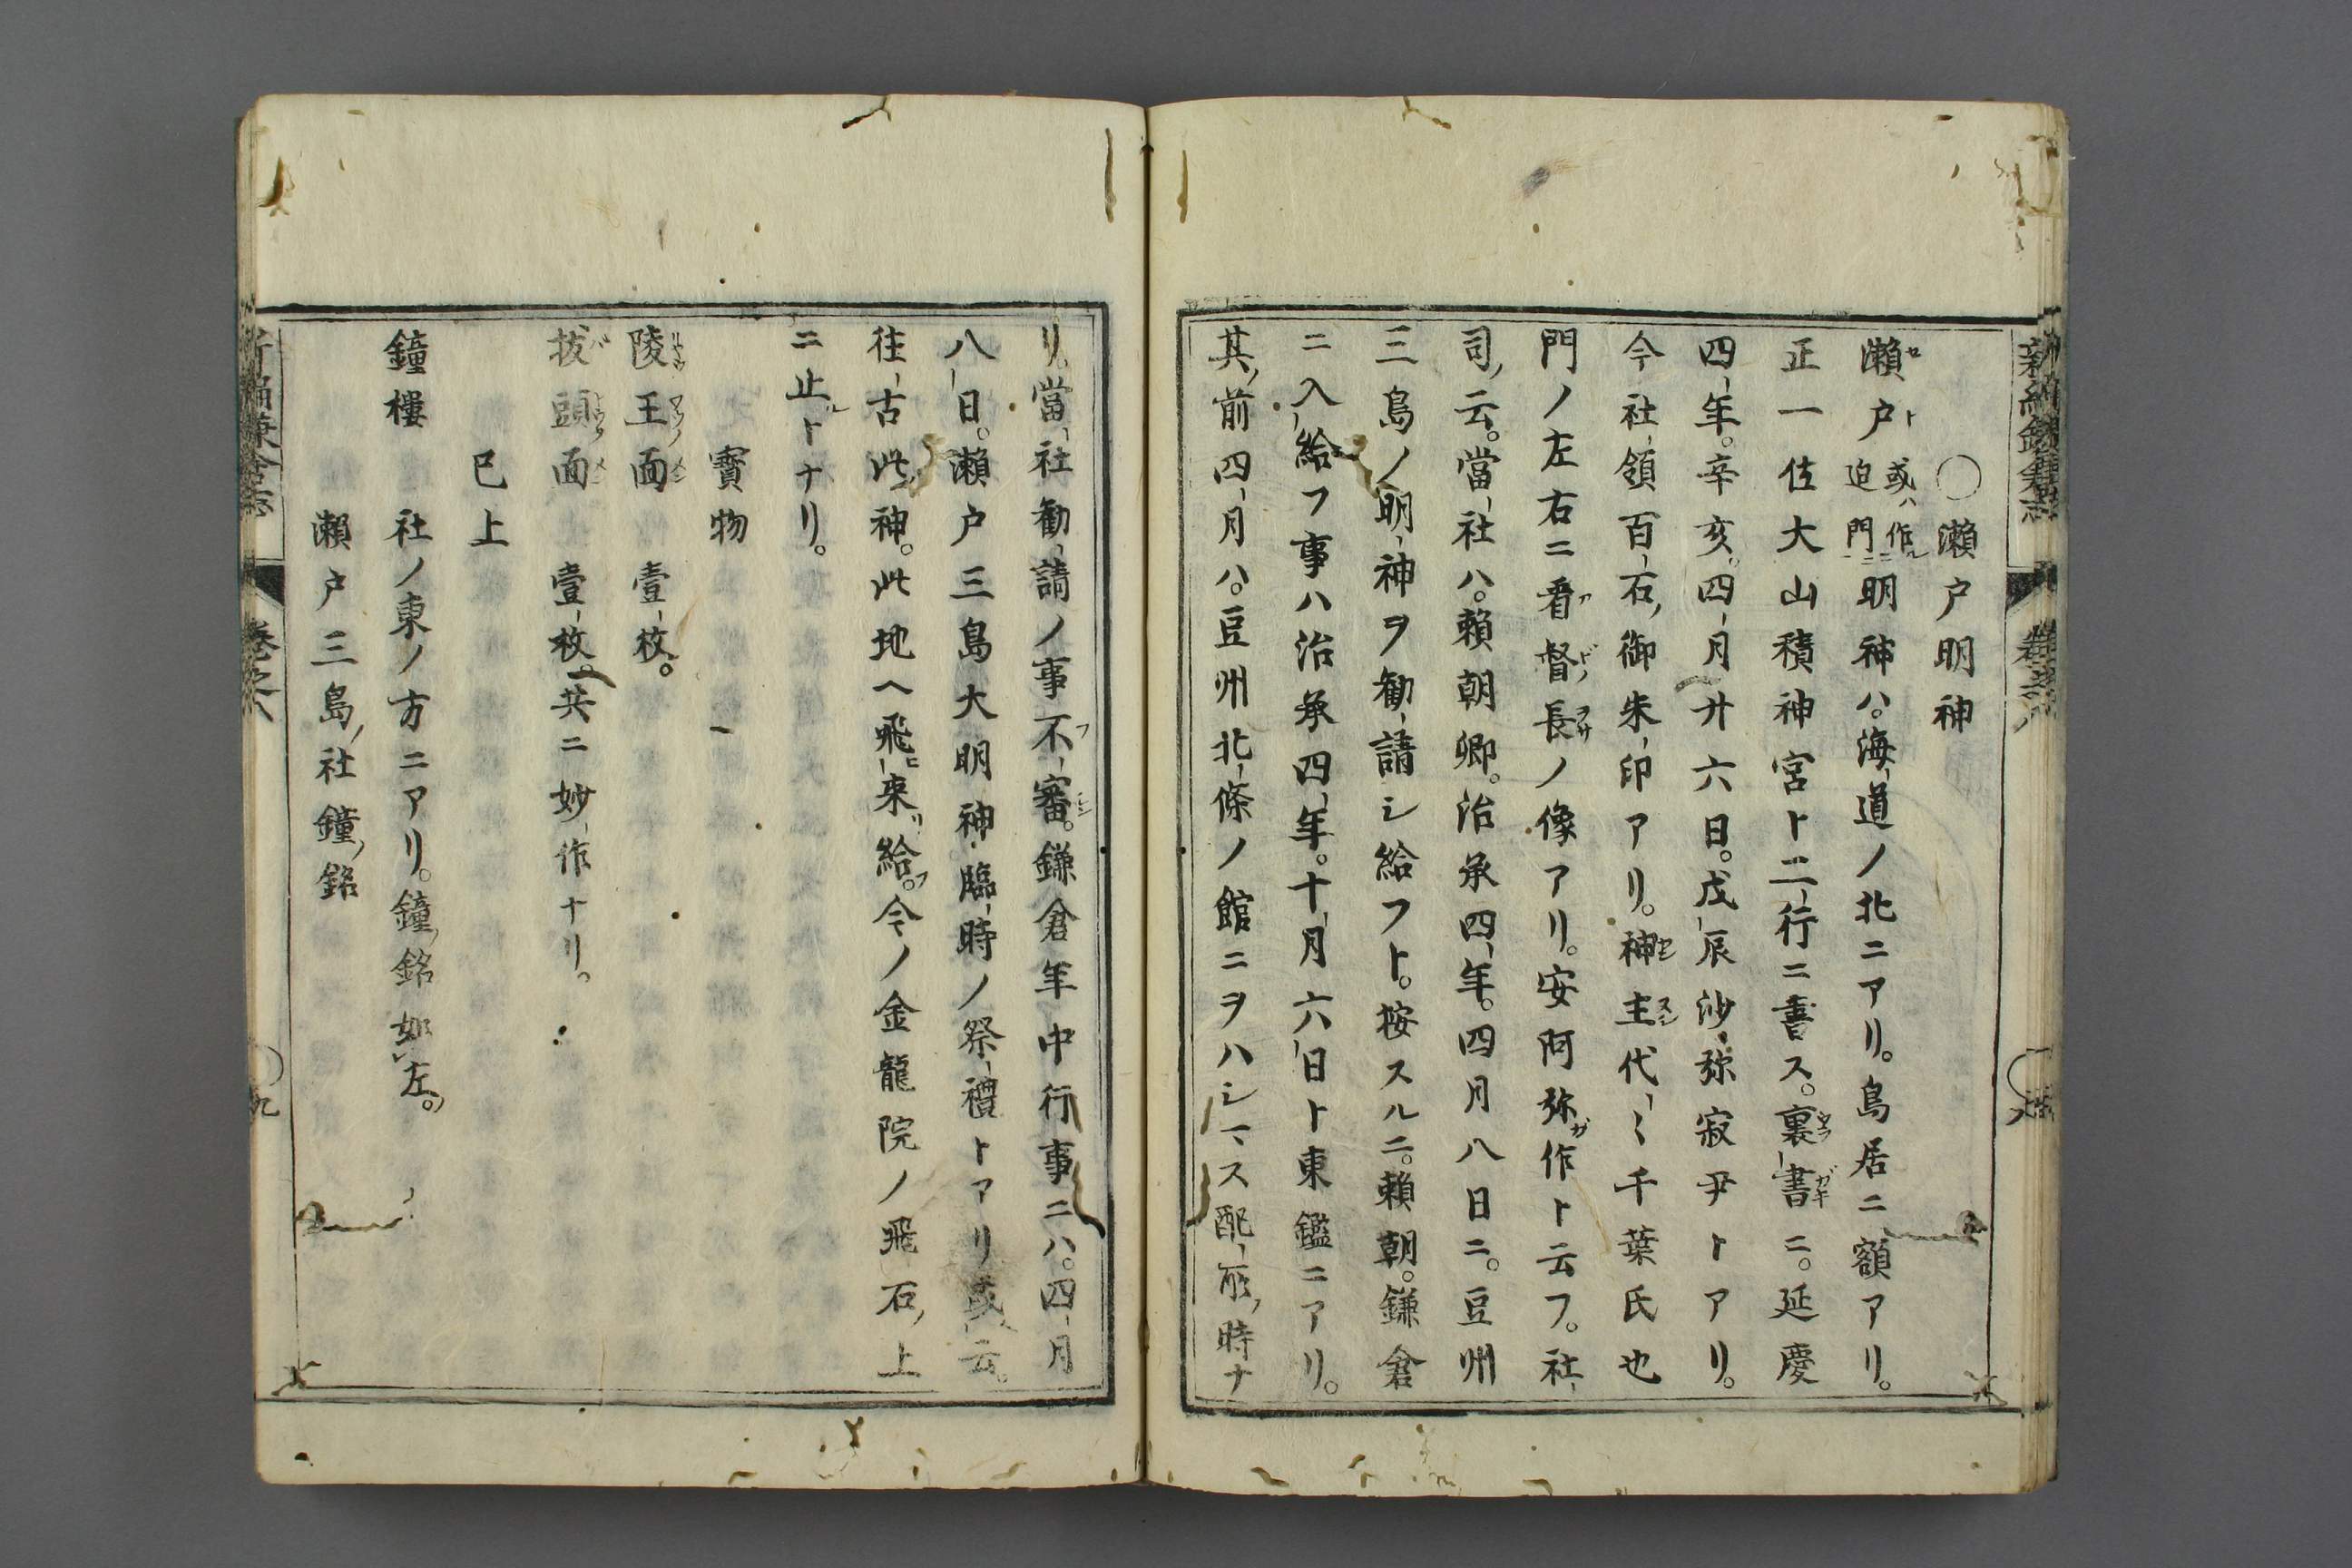 ○瀬戸明神
瀬戸或ハ作ル迫門ニ明神ハ。海道ノ北ニアリ。鳥居ニ額アリ。
正一位大山積神宮ト二行ニ書ス。裏書ニ。延慶
四年。辛亥。四月廿六日。戊辰沙弥寂尹トアリ。
今社領百石ノ御朱印アリ。神主代々千葉氏也
門ノ左右ニ看督長ノ像アリ。安阿弥作ト云フ。社
司ノ云。當社ハ。頼朝卿。治承四年。四月八日ニ。豆州
三島ノ明神ヲ勧請シ給フト。按スルニ。頼朝。鎌倉
ニ入給フ事ハ治承四年。十月六日ト東鑑ニアリ。
其ノ前四月ハ。豆州北條ノ館ニヲハシマス配所ノ時ナ
リ。當社勧請ノ事不審。鎌倉年中行事ニハ。四月
八日。瀬戸三島大明神臨時ノ祭禮トアリ或云。
往古此神。此地ヘ飛ヒ来リ給フ。今ノ金龍院ノ飛石ノ上
ニ止ルトナリ。
寶物
陵王面 壹枚。
抜頭面 壹枚。共ニ妙作ナリ。
已上
鐘樓 社ノ東ノ方ニアリ。鐘ノ銘如左。
瀬戸三島ノ社鐘ノ銘